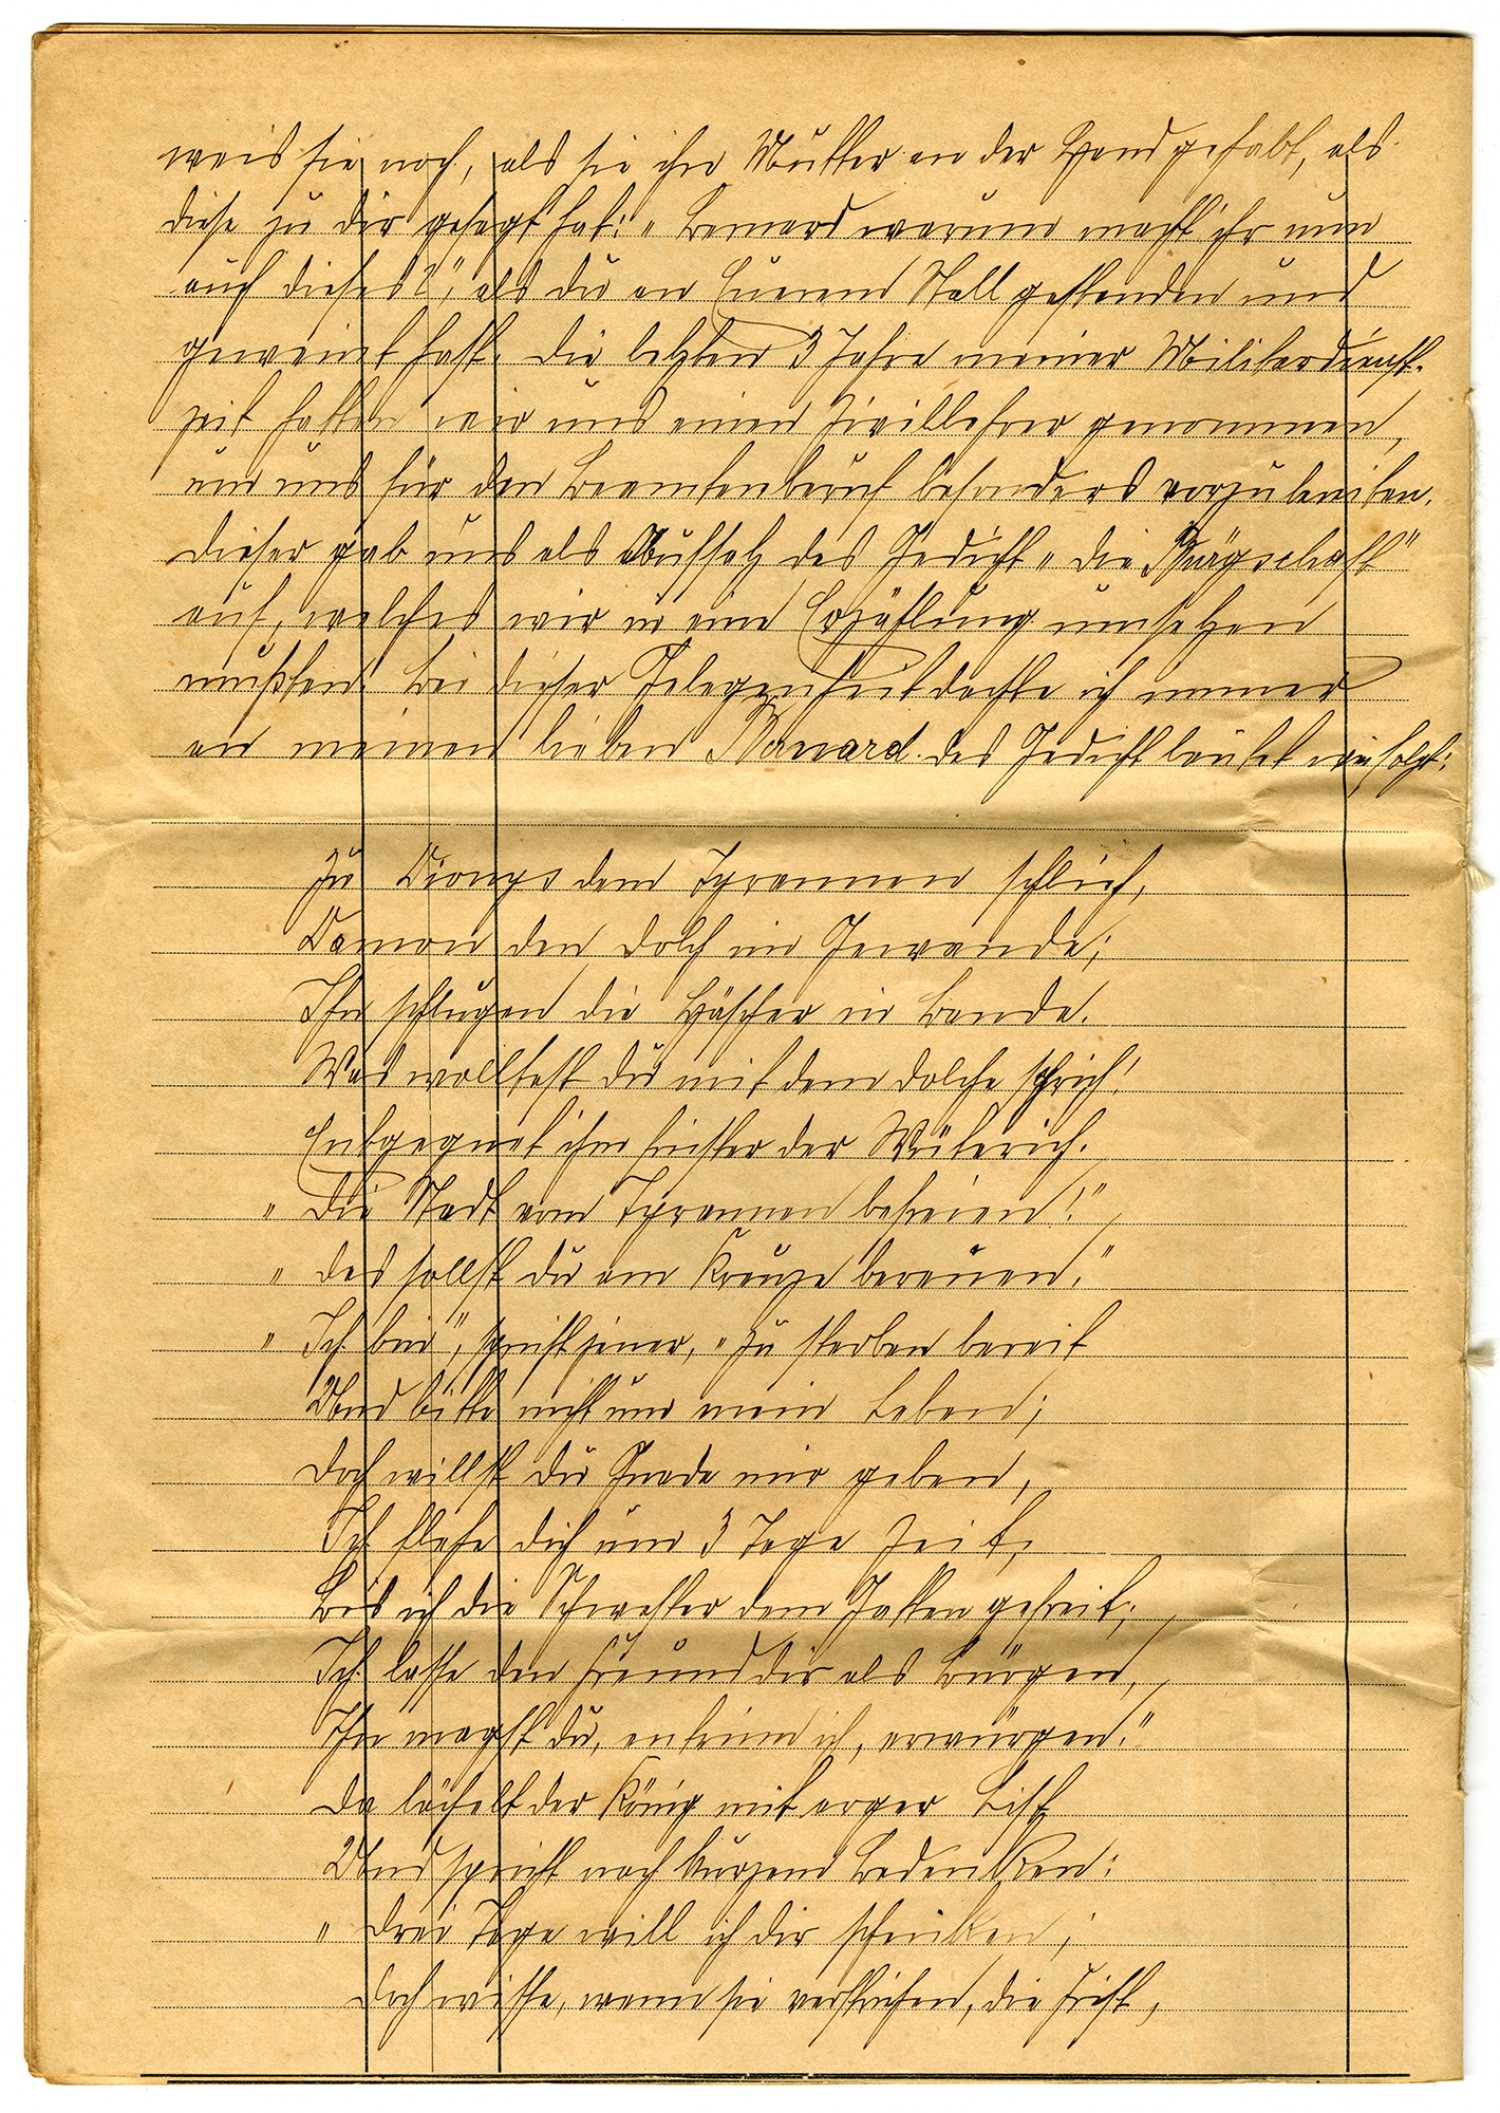 weis sie noch, als sie ihr Mutter an der Hand gehabt, als
diese zu dir gesagt hat: „Bernard warum macht ihr nun
auch dieses?", als du an Euerem Stall gestanden und
geweint hast. Die letzten 3 Jahre meiner Militerdienst-
zeit hatten wir uns einen Zivillehrer genommen,
um uns für den Beamtenberuf besonders vorzubereiten.
Dieser gab uns als Aufsatz das Gedicht „Die Bürgschaft"
auf, welches wir in eine Erzählung umsetzen
mußten. Bei dieser Gelegenheit dachte ich immer
an meinen lieben Bernard. Das Gedicht lautet wie folgt:
Zu Dionys dem Tyrannen schlich,
Damon den Dolch im Gewande;
Ihn schlugen die Häscher in Bande.
Was wolltest du mit dem Dolche sprich!
Entgegnet ihm finster der Wüterich.
„Die Stadt vom Tyrannen befreien!"
„Das sollst du am Kreuze bereuen."
„Ich bin", spricht jener, „zu sterben bereit
Und bitte nicht um mein Leben;
Doch willst du Gnade mir geben,
Ich flehe dich um 3 Tage Zeit,
Bis ich die Schwester dem Gatten gefreit;
Ich lasse den Freund dir als Bürgen,
Ihn magst du, entrinn ich, erwürgen."
Da lächelt der König mit arger List
Und spricht nach kurzem Bedenken:
„Drei Tage will ich dir schenken;
Doch wisse, wenn sie verstrichen, die Frist,